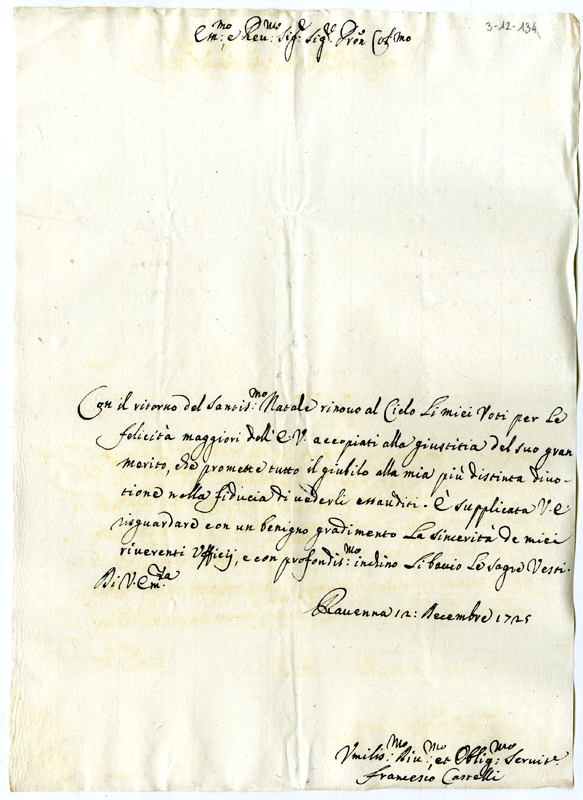 3-12-134
Em:mo e Reu:mo Sig:r Sig:r Pron Col:mo
Con il ritorno del Santis:mo Natale rinouo al Cielo Li miei Voti per Le
felicità maggiori dell'E.V. accopiati alla giustitia del suo gran
merito, che promette tutto il giubilo alla mia più distinta diuo-
tione nella fiducia di uederli essauditi. È supplicata V.E.
risguardare con un benigno gradimento La sincerità de miei
riuerenti Vfficij, e con profondis:mo inchino Li bacio Le sagre Vesti.
Di V. Em:za
Rauenna 12: Decembre 1725
Vmilis:mo Diu:mo et Oblig:mo Seruit.e
Francesco Castelli